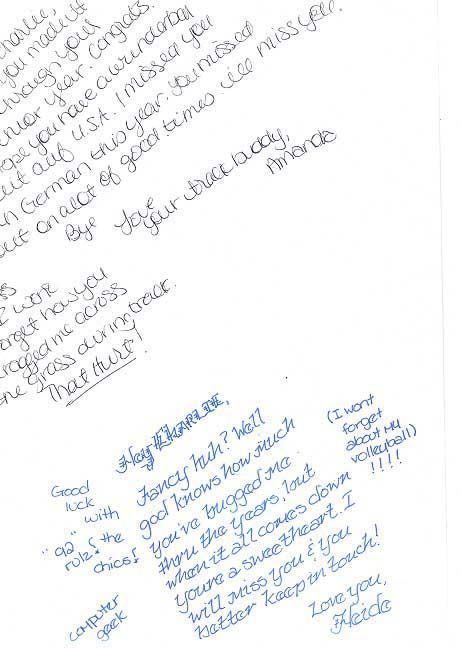 Charlie,
you made it
through your
junior year. Congrats.
hope you have a wunderbar
out auf U.S.A. I missed you
in German this year. you missed
out on alot of good times will miss you.
Bye Love
your track buddy,
Amanda
I wont
forget how you
dragged me across
the grass during track.
That Hurt!
Hey CHARLIE,
Fancy huh? Well
god knows how much
you've bugged me
thru the years, but
when it all comes down
youre a sweetheart. I
will miss you & you
better keep in touch!
Love you,
Heide
(I wont
forget
about my
volleyball)
!!!!
Good
luck
with
"da" & the
rulz! chics!
computer
geek